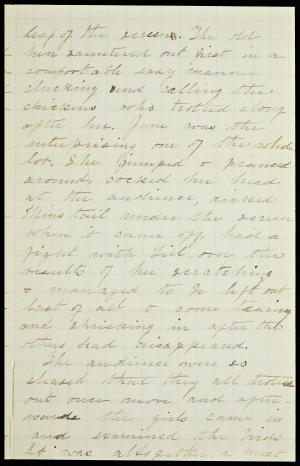 leap of the screen. The old
hen sauntered out first in a
comfortable easy manner
clucking and calling the
chickens who trotted along
after her. June was the
enterprising one of the whole
lot. She jumped & pranced
around, cocked her head
at the audience, kicked
tail under the screen
when it came off, had a
fight with over the
results of her scratching
& managed to be left out
last of all & come tearing
and shrieking in after the
others had disappeared.
The audience were so
pleased that they all trotted
out once more, and after-
wards the girls came in
and examined the birds.
It was altogether a most